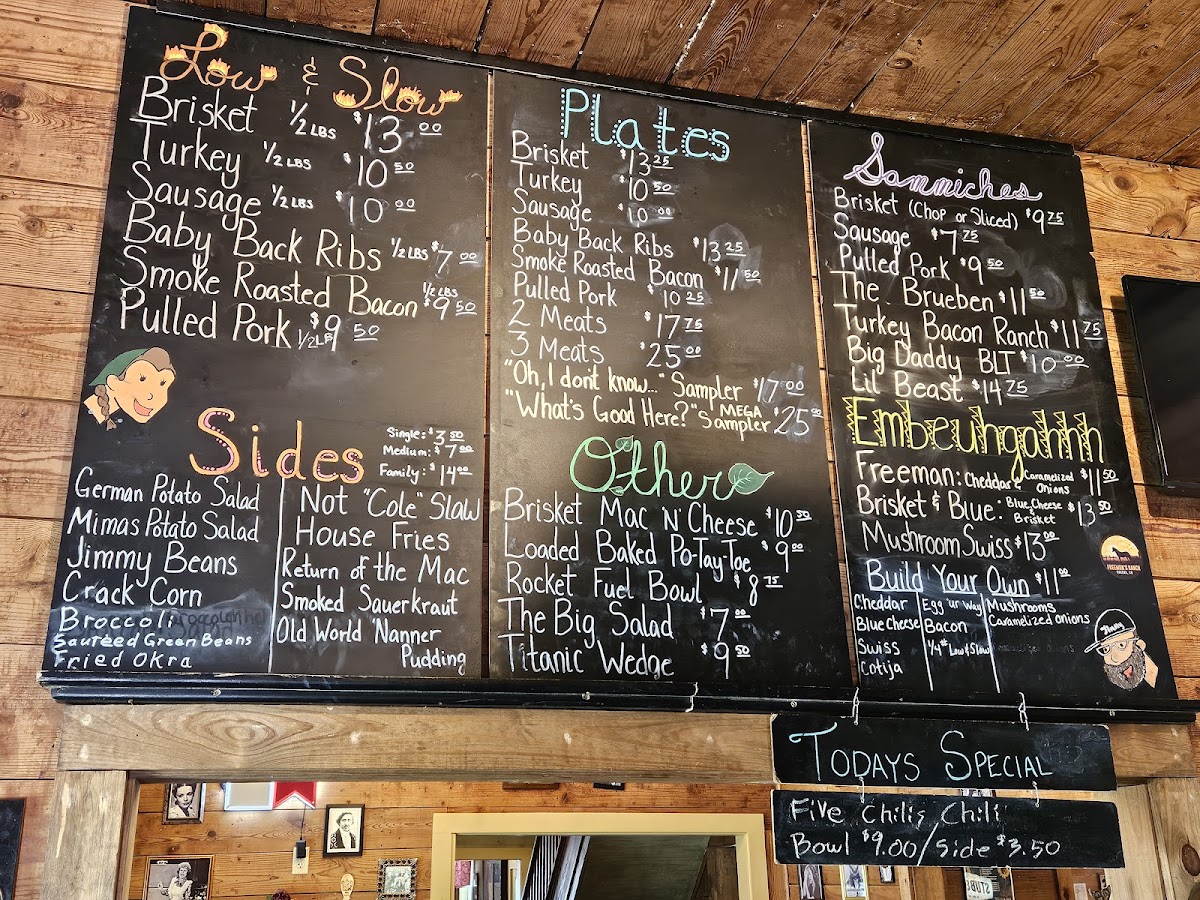 Low & Slow
Brisket 1/2 LBS $13 00
Turkey 1/2 LBS $10 50
Sausage 1/2 LBS $10 00
Baby Back Ribs 1/2 LBS $7 00
Smoke Roasted Bacon 1/2 LBS $9 50
Pulled Pork 1/2 LB $9 50
Sides
Single: $3 50
Medium: $7 00
Family: $14 00
German Potato Salad
Mimas Potato Salad
Jimmy Beans
Crack Corn
Broccoli
Sauteed Green Beans
Fried Okra
Not "Cole" Slaw
House Fries
Return of the Mac
Smoked Sauerkraut
Old World 'Nanner
Pudding
Plates
Brisket $13 25
Turkey $10 50
Sausage $10 00
Baby Back Ribs $13 25
Smoke Roasted Bacon $11 50
Pulled Pork $10 25
2 Meats $17 75
3 Meats $25 00
"Oh, I don't know..." Sampler $17 00
"What's Good Here?" MEGA Sampler $25 00
Other
Brisket Mac 'N' Cheese $10 50
Loaded Baked Po-Tay-Toe $9 00
Rocket Fuel Bowl $8 75
The Big Salad $7 00
Titanic Wedge $9 50
Sammiches
Brisket (Chop or Sliced) $9 75
Sausage $7 75
Pulled Pork $9 50
The Brueben $11 50
Turkey Bacon Ranch $11 75
Big Daddy BLT $10 00
Lil Beast $14 75
Embeuhgahhh
Freeman: Cheddar & Caramelized Onions $11 50
Brisket & Blue: Blue Cheese & Brisket $13 50
Mushroom Swiss $13 00
Build Your Own $11 00
Cheddar
Blue Cheese
Swiss
Cotija
Egg ur Way
Bacon
1/4 # Low & Slow
Mushrooms
Caramelized Onions
FREEMAN'S RANCH
Jimmy
Todays Special
Five Chilis Chili
Bowl $9.00/Side $3.50